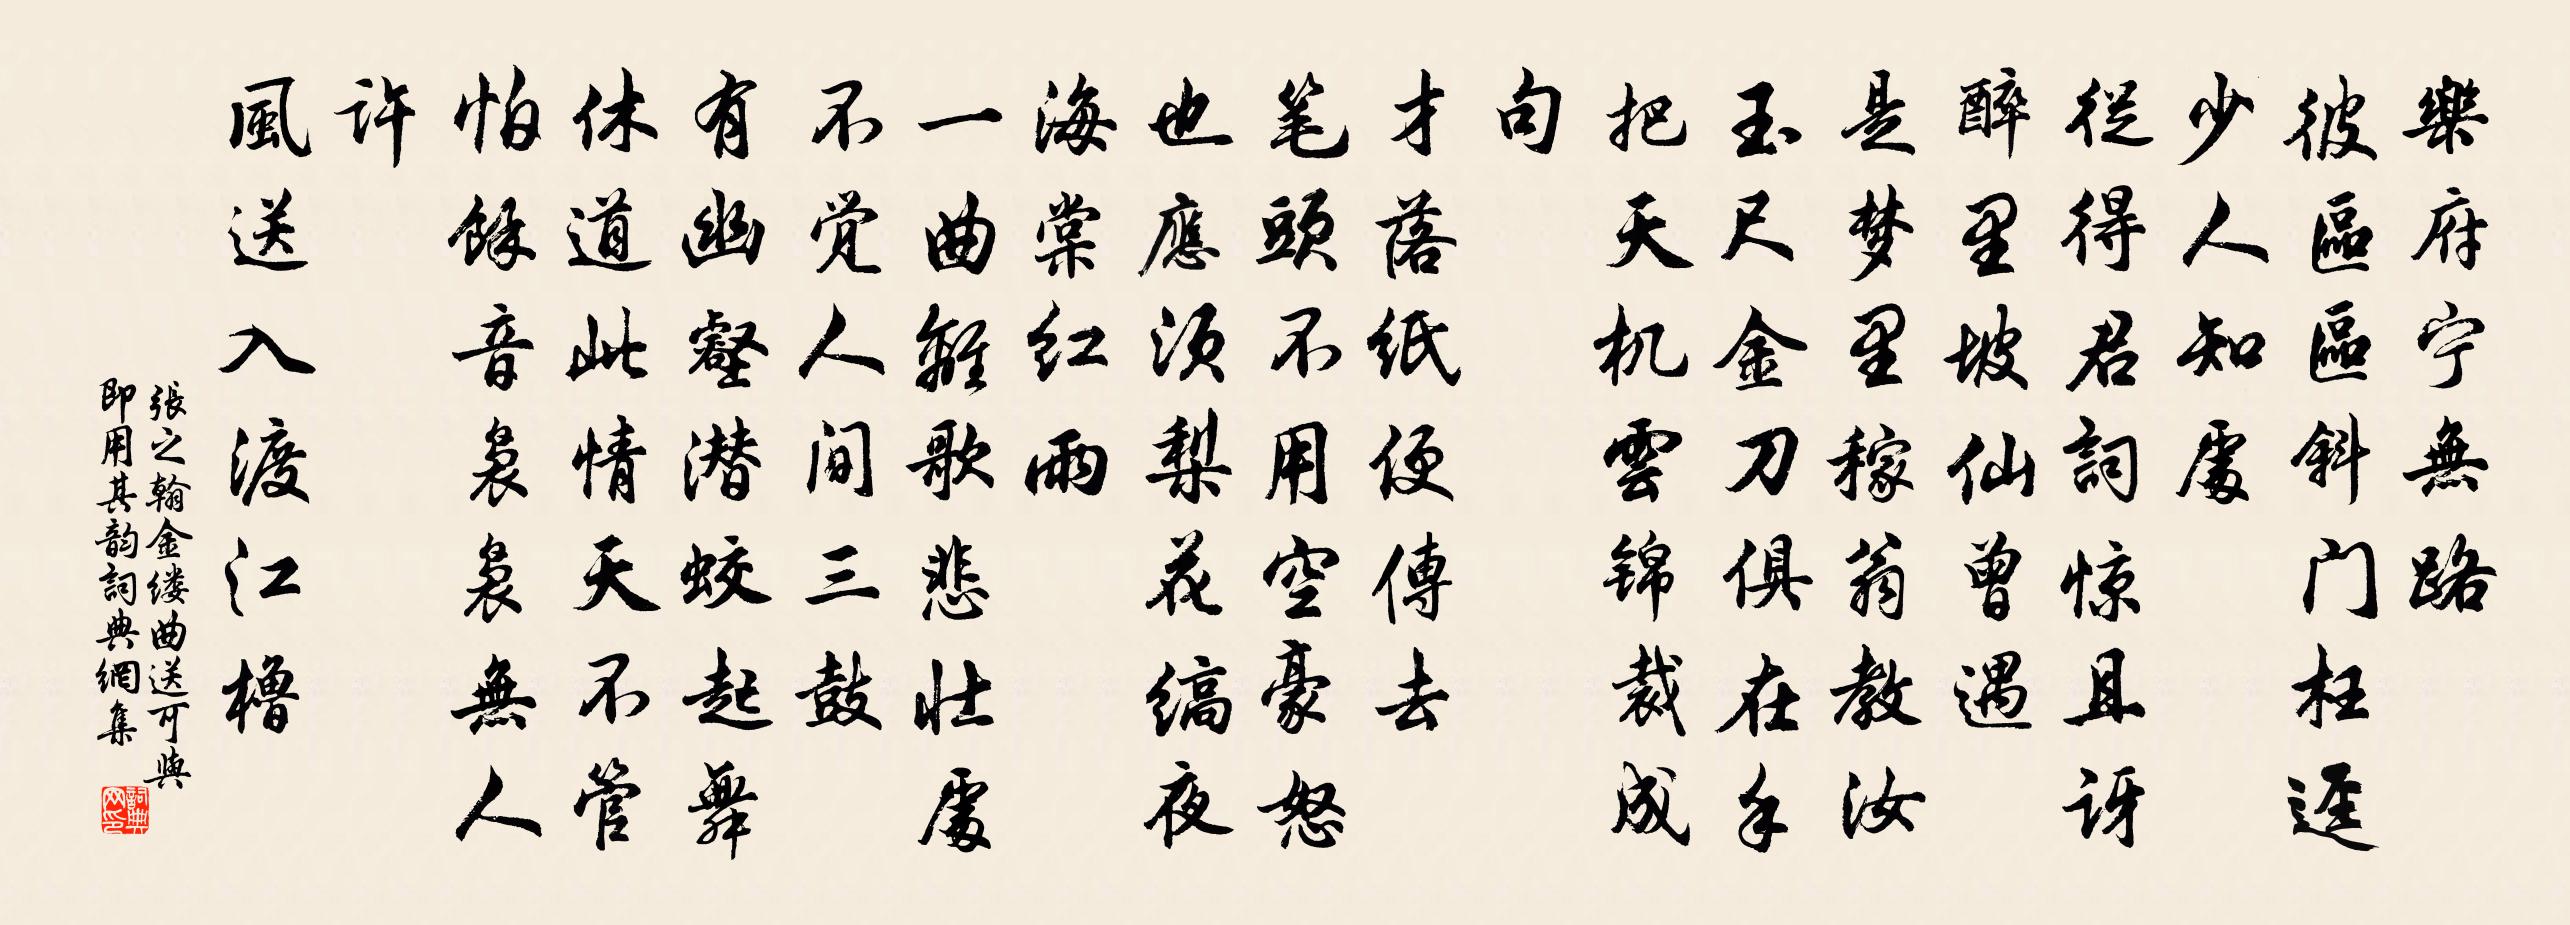 樂府宁無路
彼區區斜门枉逕
少人知處
從得君詞惊且訝
醉里坡仙曾遇
是梦里稼翁教汝
玉尺金刀俱在手
把天机雲锦裁成
句
才落纸便傳去
笔頭不用空豪怒
也應须梨花缟夜
海棠红雨
一曲離歌悲壮處
不觉人间三鼓
有幽壑潜蛟起舞
休道此情天不管
怕餘音袅袅無人
许
風送入渡江櫓
張之翰金缕曲送可與
即用其韵詞典網集
詞典网印